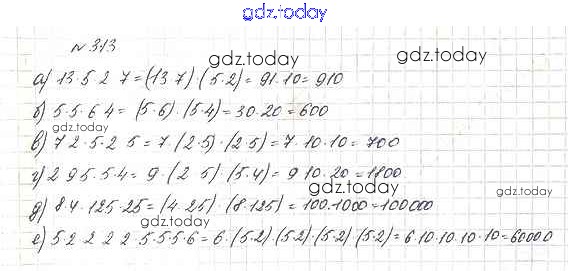 gdz.today
№ 313
gdz.today gdz.today
а) 13·5·2·7=(13·7)·(5·2)=91·10=910
б) 5·5·6·4=(5·6)·(5·4)=30·20=600
gdz.today
в) 7·2·5·2·5=7·(2·5)·(2·5)=7·10·10=700
г) 2·9·5·5·4=9·(2·5)·(5·4)=9·10·20=1800
gdz.today gdz.today
д) 8·4·125·25=(4·25)·(8·125)=100·1000=100000
gdz.today
е) 5·2·2·2·2·5·5·5·6=6·(5·2)·(5·2)·(5·2)·(5·2)=6·10·10·10·10=60000